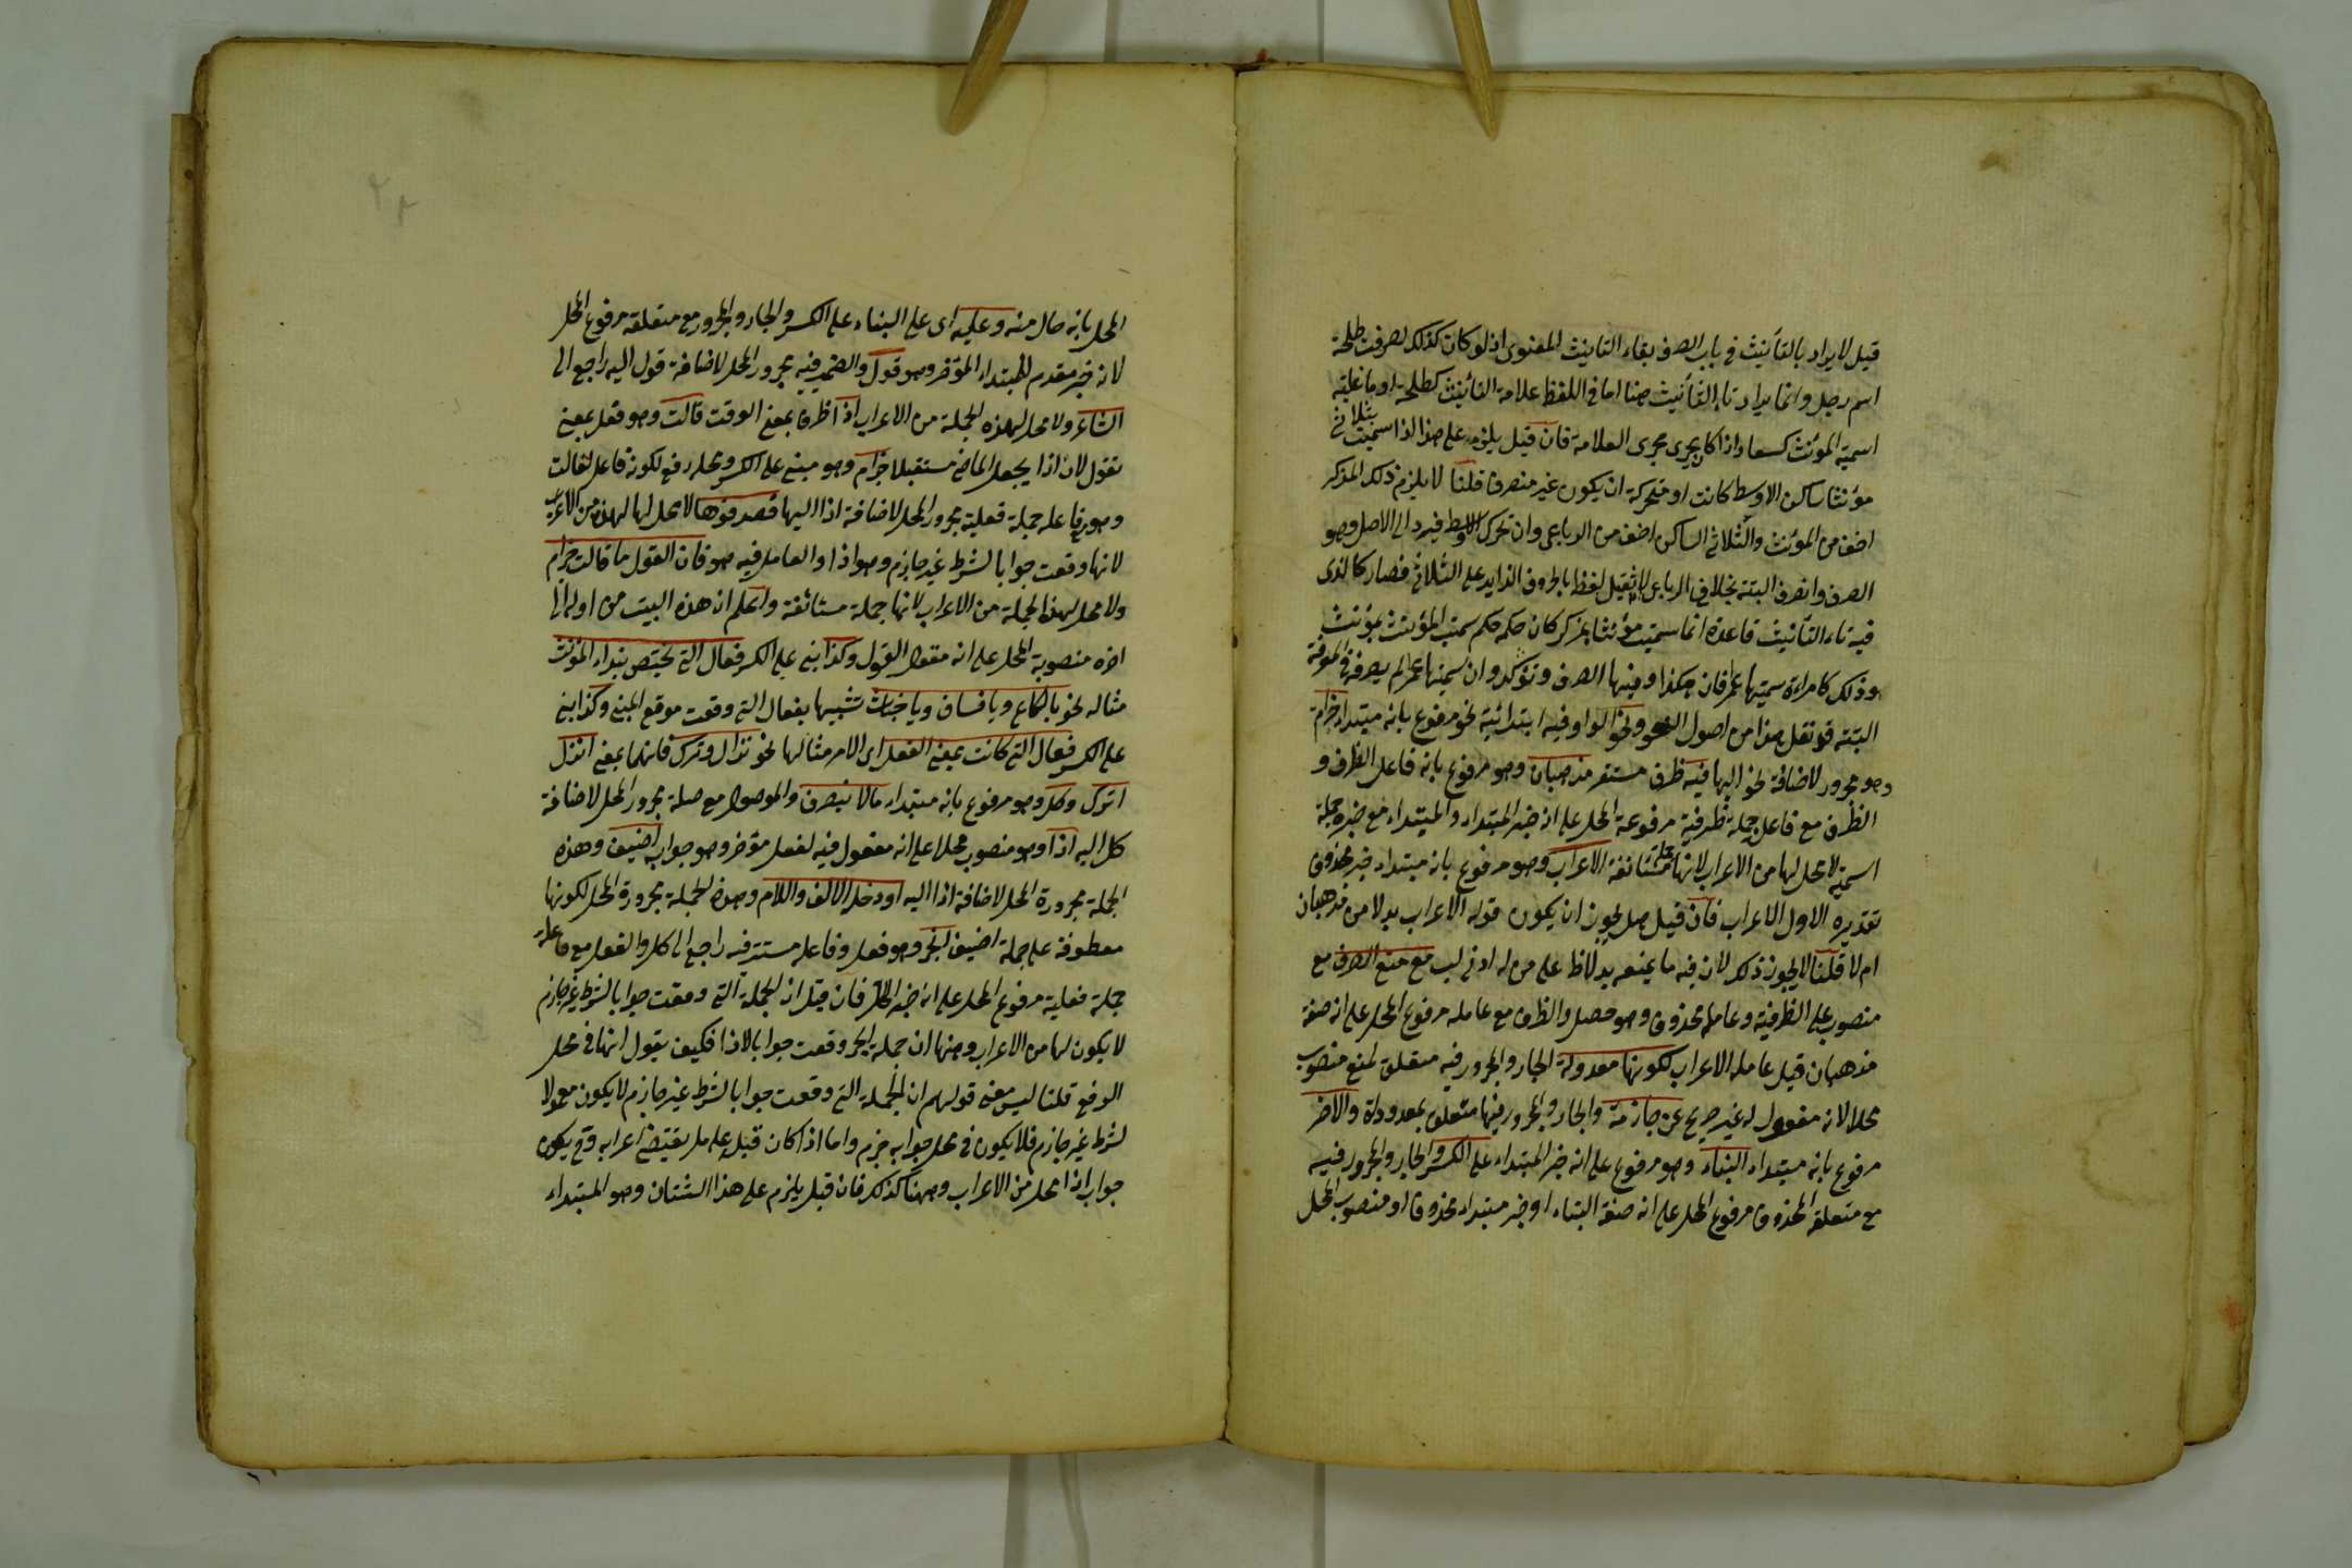 قيل لا يراد بالتأنيث في باب الصرف بقاء التانيث المعنوى اذ لو كان كذلك لصرفت طلحة
اسم رجل وانما يراد تاء التأنيث هنا اما في اللفظ علامة التأنيث كطلحة او ما غلبة
اسمية المؤنث كسعاد اذا كان يجرى مجرى العلامة فان قيل يلزم على هذا اذا سميت بثلاثى
مؤنثا ساكن الاوسط كانت او متحركة ان يكون غير منصرف قلنا لا يلزم ذلك المذكر
اخف من المؤنث والثلاثى الساكن اخف من الرباعى وان تحرك الاوسط فيرد الى الاصل وهو
الصرف وانصرف البتة بخلاف الرباعى لا ثقيل لفظا بالحروف الزايد على الثلاثى فصار كالذى
فيه تاء التأنيث قاعدة انما سميت مؤنثا بمذكر كان حكمه حكم سميت المؤنث بمؤنث
وذلك كامراءة سميتها عمر فان هكذا وفيها الصرف وتؤكد وان سميتها عمر لم يصرف في المعرفة
البتة قد نقل هذا من اصول النحو ونحو الواو فيه ابتدائية نحو مرفوع بانه مبتداء حزام
وهو مجرور لاضافة نحو اليها فيه ظرف مستقر مذهبان وهو مرفوع بانه فاعل الظرف و
الظرف مع فاعل جملة ظرفية مرفوعة المحل على انه خبر المبتداء والمبتداء مع خبره جملة
اسمية لا محل لها من الاعراب لانها جملة مستأنفة الاعراب وهو مرفوع بانه مبتداء خبره محذوف
تقديره الاول الاعراب فان قيل هل يجوز ان يكون قوله الاعراب بدلا من مذهبان
ام لا قلنا لا يجوز ذلك لان فيه ما يمنعه بدلا ظ على من له ادنى لب مع منع الصرف مع
منصوب على الظرفية وعامله محذوف وهو حصل والظرف مع عامله مرفوع المحل على انه صفة
مذهبان قيل عامله الاعراب لكونها معدولة الجار والمجرور فيه متعلق لمنع منصوب
محلا لانه مفعول له غير صريح عن حازمة والجار والمجرور فيها متعلق بمعدودلة والاخر
مرفوع بانه مبتداء البناء وهو مرفوع على انه خبر المبتداء على الكسر والجار والمجرور فيه
مع متعلقه المحذوف مرفوع المحل على انه صفة البناء او خبر مبتداء محذوف او منصوب المحل
المحل بانه حال منه وعليه اى على البناء على الكسر والجار والمجرور مع متعلقه مرفوع المحل
لانه خبر مقدم للمبتداء المؤخر وهو قول والضمير فيه مجرور المحل لاضافة قول اليه راجع الى
الشاعر ولا محل لهذه الجملة من الاعراب اذا ظرف بمعنى الوقت قالت وهو فعل بمعنى
تقول لان اذا يجعل الماضى مستقبلا حزام وهو مبنى على الكسر ومحله رفع لكونه فاعل لقالت
وهو بفاعله جملة فعلية مجرور المحل لاضافة اذا اليها فصدقوها لا محل لها لهذه من الاعراب
لانها وقعت جوابا لشرط غير جازم وهو اذا والعامل فيه هو فان القول ما قالت حزام
ولا محل لهذا الجملة من الاعراب لانها جملة مستأنفة واعلم ان هذه البيت من اوله الى
اخره منصوبة المحل على انه مقول القول وكذا بنى على الكسر فعال التى يختص بنداء المؤنث
مثاله نحو يا لكاع ويا فساق ويا خباث تشبيها بفعال التى وقعت موقع المبنى وكذا بنى
على الكسر فعال التى كانت بمعنى الفعل اى الامر مثالها نحو نزال وتراك فانهما بمعنى انزل
اترك وكل وهو مرفوع بانه مبتداء ما لا ينصرف والموصول مع صلة مجرور المحل لاضافة
كل اليه اذا وهو منصوب محلا على انه مفعول فيه لفعل مؤخر وهو جواب اضيف وهذه
الجملة مجرورة المحل لاضافة اذا اليه او دخل الالف واللام وهذه الجملة مجرورة المحل لكونها
معطوفة على جملة اضيف انجر وهو فعل وفاعله مستتر فيه راجع الى كل والفعل مع فاعله
جملة فعلية مرفوع المحل على انه خبر الكل فان قيل ان الجملة التى وقعت جوابا لشرط غير جازم
لا يكون لها من الاعراب وههنا ان جملة انجر وقعت جوابا لاذا فكيف يقول انها في محل
الرفع قلنا ليس معنى قولهم ان الجملة التى وقعت جوابا لشرط غير جازم لا يكون معمولا
لشرط غير جازم فلا يكون في محل جوابه جزم واما اذا كان قبله عامل يقتضى اعرابه فح يكون
جواب اذا محل من الاعراب وههنا كذلك فان قيل يلزم على هذا الشتان وهو المبتداء